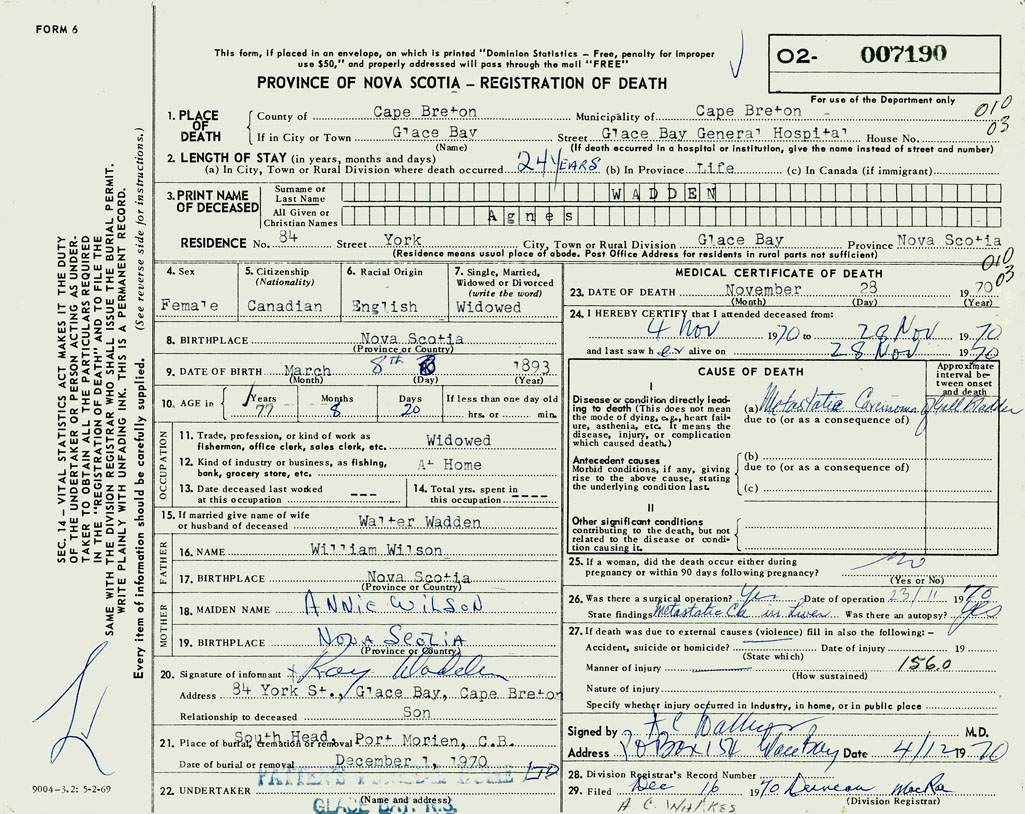 FORM 6
This form, if placed in an envelope, on which is printed "Dominion Statistics – Free, penalty for improper
use $50," and properly addressed will pass through the mail "FREE"
PROVINCE OF NOVA SCOTIA – REGISTRATION OF DEATH
02- 007190
For use of the Department only
010
03
1. PLACE OF DEATH
County of Cape Breton Municipality of Cape Breton
If in City or Town Glace Bay Street Glace Bay General Hospital House No.
(Name) (If death occurred in a hospital or institution, give the name instead of street and number)
2. LENGTH OF STAY (in years, months and days)
(a) In City, Town or Rural Division where death occurred 24 YEARS (b) In Province Life (c) In Canada (if immigrant)
3. PRINT NAME OF DECEASED
Surname or Last Name WADDEN
All Given or Christian Names Agnes
RESIDENCE No. 84 Street York City, Town or Rural Division Glace Bay Province Nova Scotia
(Residence means usual place of abode. Post Office Address for residents in rural parts not sufficient)
010
03
4. Sex
Female
5. Citizenship
(Nationality)
Canadian
6. Racial Origin
English
7. Single, Married,
Widowed or Divorced
(write the word)
Widowed
8. BIRTHPLACE Nova Scotia
(Province or Country)
9. DATE OF BIRTH March 8th 1893
(Month) (Day) (Year)
10. AGE in
Years 77
Months 8
Days 20
If less than one day old
hrs. or min.
OCCUPATION
11. Trade, profession, or kind of work as
fisherman, office clerk, sales clerk, etc. Widowed
12. Kind of industry or business, as fishing,
bank, grocery store, etc. At Home
13. Date deceased last worked
at this occupation ---
14. Total yrs. spent in
this occupation ----
15. If married give name of wife
or husband of deceased Walter Wadden
FATHER
16. NAME William Wilson
17. BIRTHPLACE Nova Scotia
(Province or Country)
MOTHER
18. MAIDEN NAME ANNIE WILSON
19. BIRTHPLACE NOVA SCOTIA
(Province or Country)
20. Signature of informant x Roy Wadden
Address 84 York St., Glace Bay, Cape Breton
Relationship to deceased Son
21. Place of burial, cremation or removal South Head, Port Morien, C.B.
Date of burial or removal December 1, 1970
22. UNDERTAKER FUNERAL HOME LTD
(Name and address)
GLACE BAY, N.S.
MEDICAL CERTIFICATE OF DEATH
23. DATE OF DEATH November 28 1970
(Month) (Day) (Year)
24. I HEREBY CERTIFY that I attended deceased from:
4 Nov 1970 to 28 Nov 1970
and last saw her alive on 28 Nov 1970
CAUSE OF DEATH
Approximate
interval be-
tween onset
and death
I
Disease or condition directly lead-
ing to death (This does not mean
the mode of dying, e.g., heart fail-
ure, asthenia, etc. It means the
disease, injury, or complication
which caused death.)
(a) Metastatic Carcinoma of Gall Bladder
due to (or as a consequence of)
Antecedent causes
Morbid conditions, if any, giving
rise to the above cause, stating
the underlying condition last.
(b)
due to (or as a consequence of)
(c)
II
Other significant conditions
contributing to the death, but not
related to the disease or condi-
tion causing it.
25. If a woman, did the death occur either during
pregnancy or within 90 days following pregnancy? no
(Yes or No)
26. Was there a surgical operation? Yes Date of operation 23/11 1970
State findings Metastatic Ca in Liver Was there an autopsy? Yes
27. If death was due to external causes (violence) fill in also the following: –
Accident, suicide or homicide? Date of injury 19
(State which)
Manner of injury 156.0
(How sustained)
Nature of injury
Specify whether injury occurred in industry, in home, or in public place
Signed by M.D.
Address P O Box 158 Glace Bay Date 4/12 1970
28. Division Registrar's Record Number
29. Filed Dec 16 1970 Duncan MacRa
(Division Registrar)
SEC. 14 – VITAL STATISTICS ACT MAKES IT THE DUTY
OF THE UNDERTAKER OR PERSON ACTING AS UNDER-
TAKER TO OBTAIN ALL THE PARTICULARS REQUIRED
IN THE "REGISTRATION OF DEATH" AND TO FILE THE
SAME WITH THE DIVISION REGISTRAR WHO SHALL ISSUE THE BURIAL PERMIT.
WRITE PLAINLY WITH UNFADING INK. THIS IS A PERMANENT RECORD.
Every item of information should be carefully supplied. (See reverse side for instructions.)
9004-3.2: 5-2-69